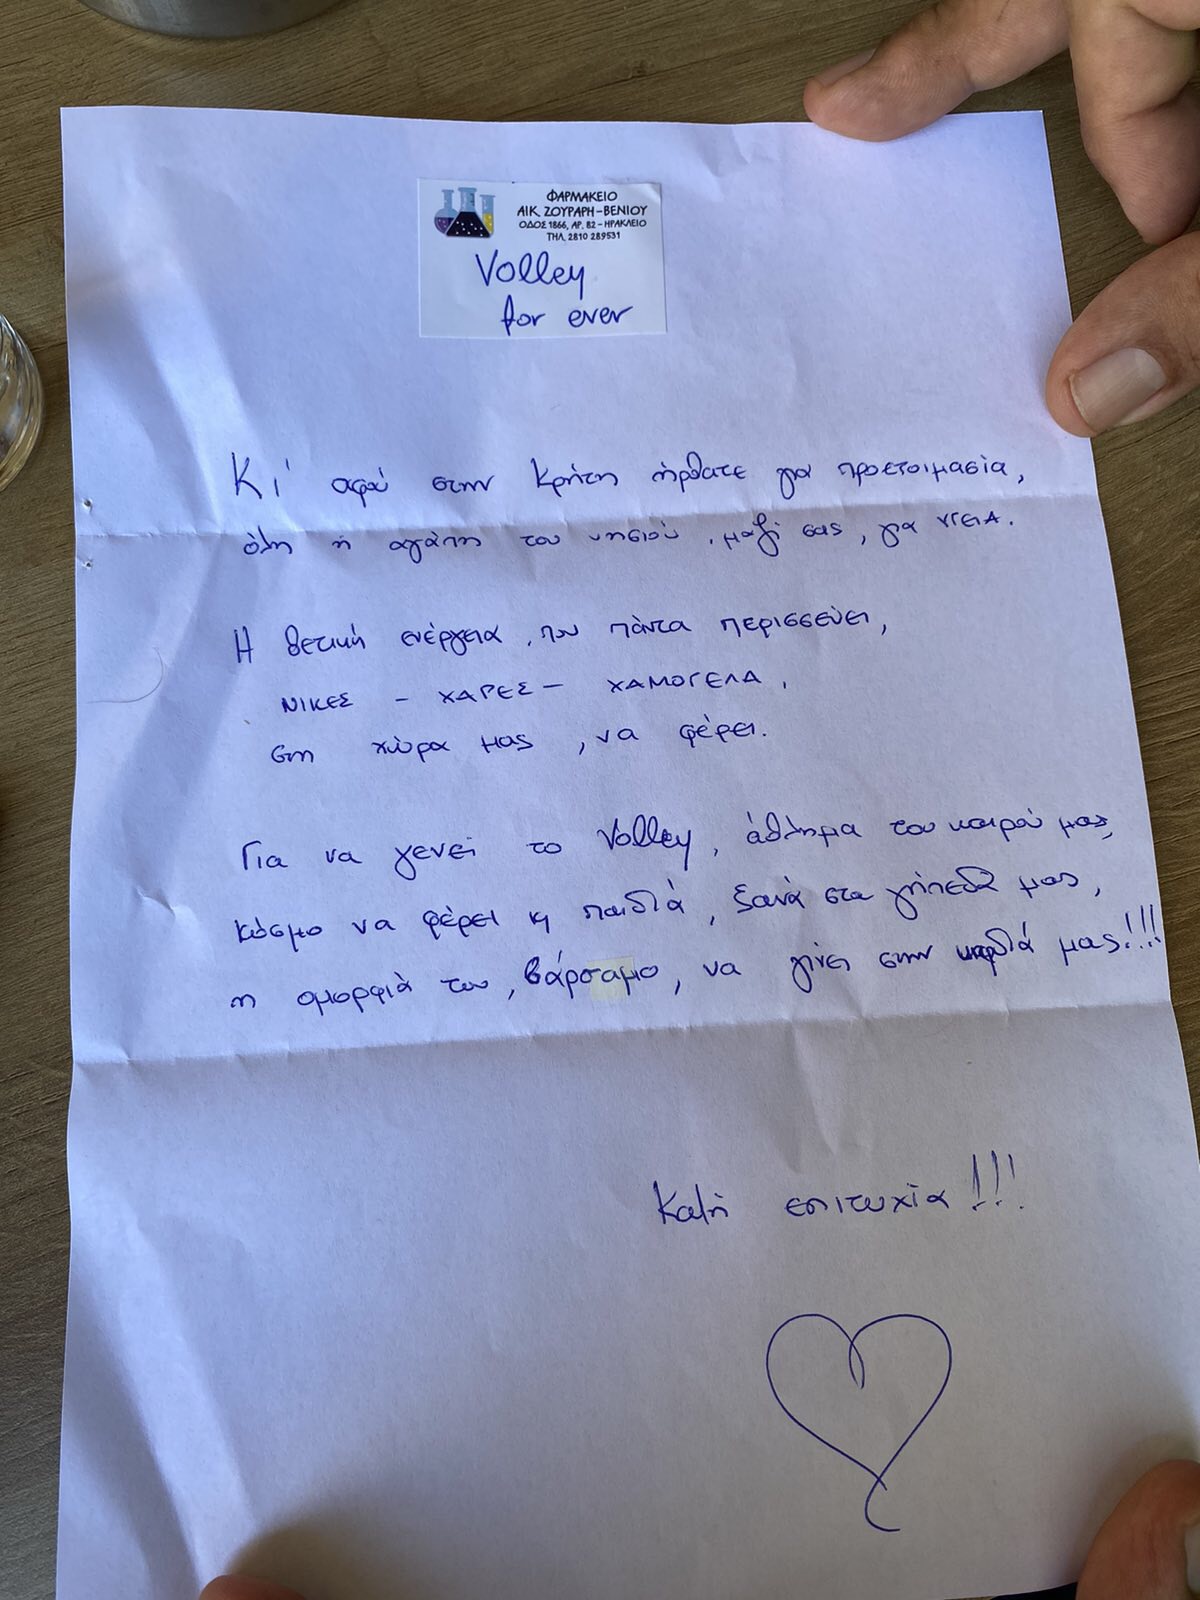 ΦΑΡΜΑΚΕΙΟ
ΑΙΚ. ΖΟΥΡΑΡΗ-ΒΕΝΙΟΥ
ΟΔΟΣ 1866, ΑΡ. 82 - ΗΡΑΚΛΕΙΟ
ΤΗΛ. 2810 289531
Volley
for ever
Κι' αφού στην Κρήτη ήρθατε για προετοιμασία,
όλη η αγάπη του νησιού, μαζί σας, για ΥΓΕΙΑ.
Η θετική ενέργεια, που πάντα περισσεύει,
ΝΙΚΕΣ - ΧΑΡΕΣ - ΧΑΜΟΓΕΛΑ,
στη χώρα μας, να φέρει.
Για να γενεί το Volley, άθλημα του καιρού μας,
κόσμο να φέρει κ παιδιά, ξανά στα γήπεδα μας,
η ομορφιά του, βάρσαμο, να γίνει στην καρδιά μας!!!
Καλή επιτυχία!!!